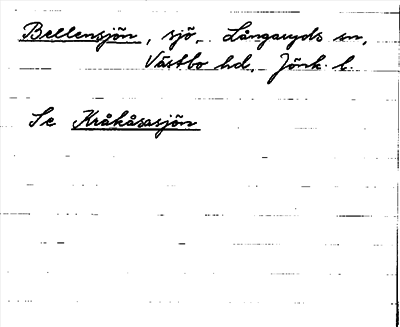 Bellensjön, sjö. Långaryds sn,
Västbo hd. Jönk. l.
Se Kråkåsasjön